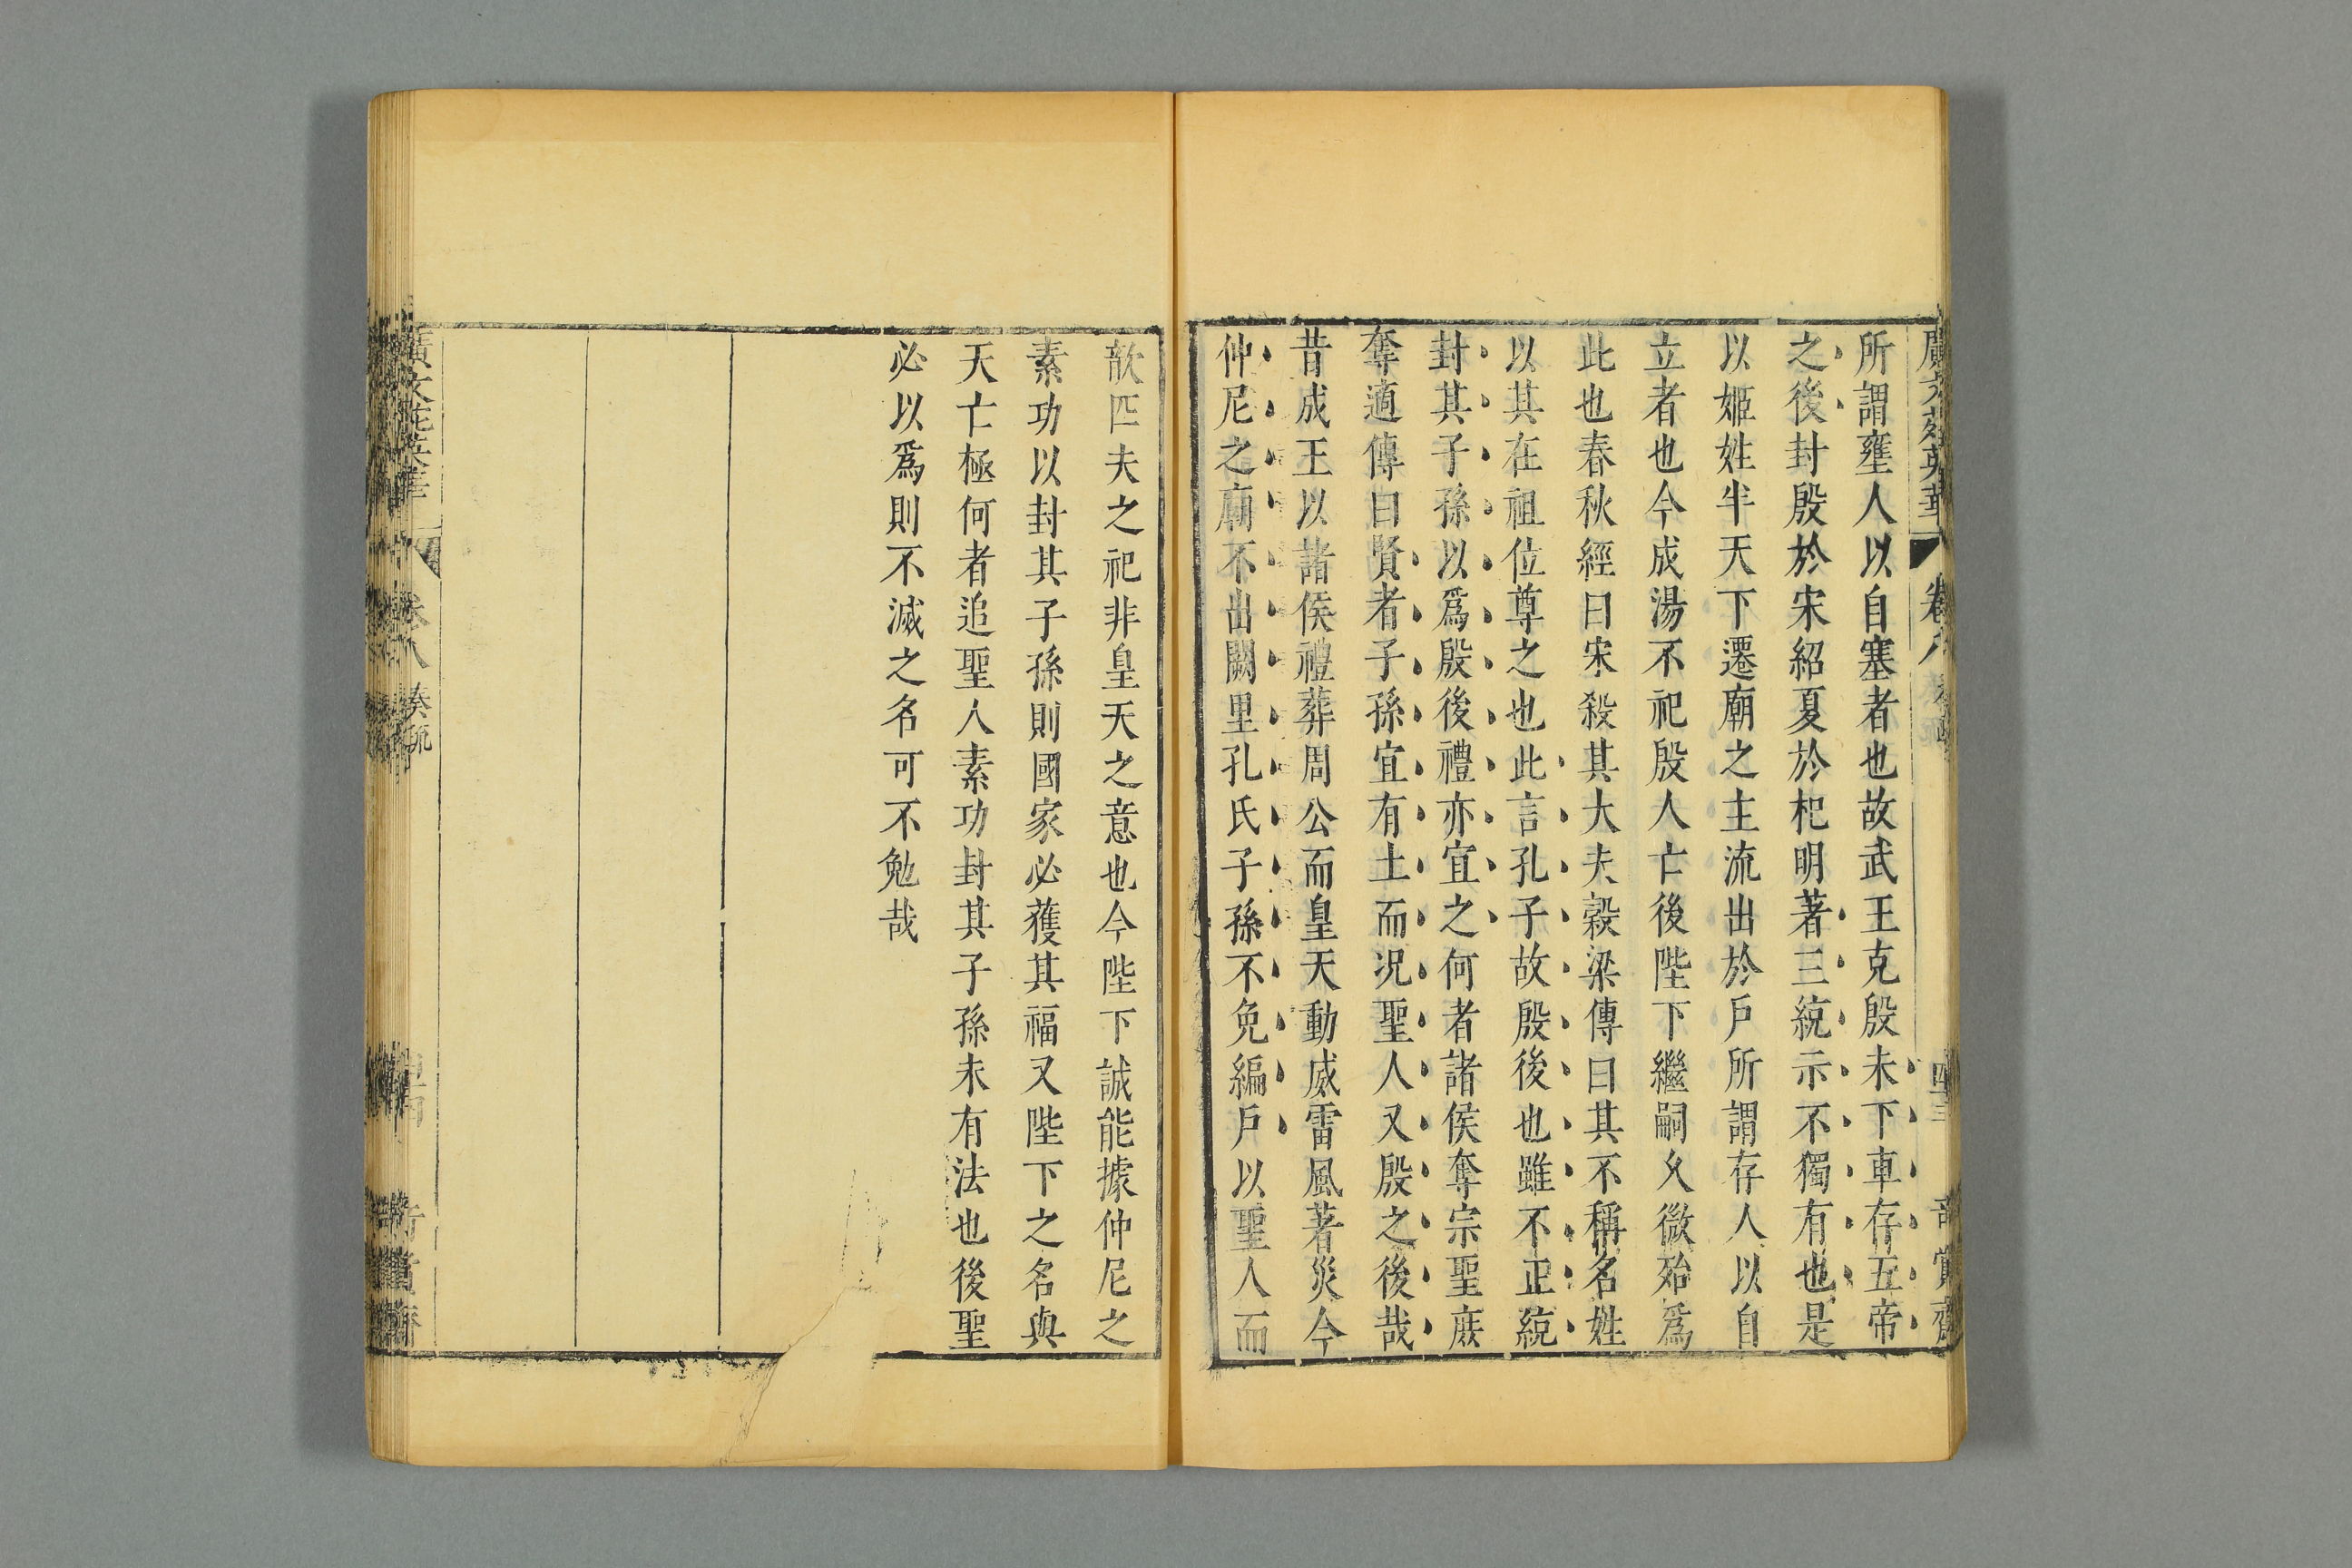 廣文苑英華 卷八 奏疏 四十三 奇賞齋
所謂壅人以自塞者也故武王克殷未下車存五帝
之後封殷於宋紹夏於杞明著三統示不獨有也是
以姬姓半天下遷廟之主流出於戶所謂存人以自
立者也今成湯不祀殷人亡後陛下繼嗣久微殆爲
此也春秋經曰宋殺其大夫穀梁傳曰其不稱名姓
以其在祖位尊之也此言孔子故殷後也雖不正統
封其子孫以爲殷後禮亦宜之何者諸侯奪宗聖庶
奪適傳曰賢者子孫宜有土而況聖人又殷之後哉
昔成王以諸侯禮葬周公而皇天動威雷風著災今
仲尼之廟不出闕里孔氏子孫不免編戶以聖人而
歆匹夫之祀非皇天之意也今陛下誠能據仲尼之
素功以封其子孫則國家必獲其福又陛下之名與
天亡極何者追聖人素功封其子孫未有法也後聖
必以爲則不滅之名可不勉哉
廣文苑英華 卷八 奏疏